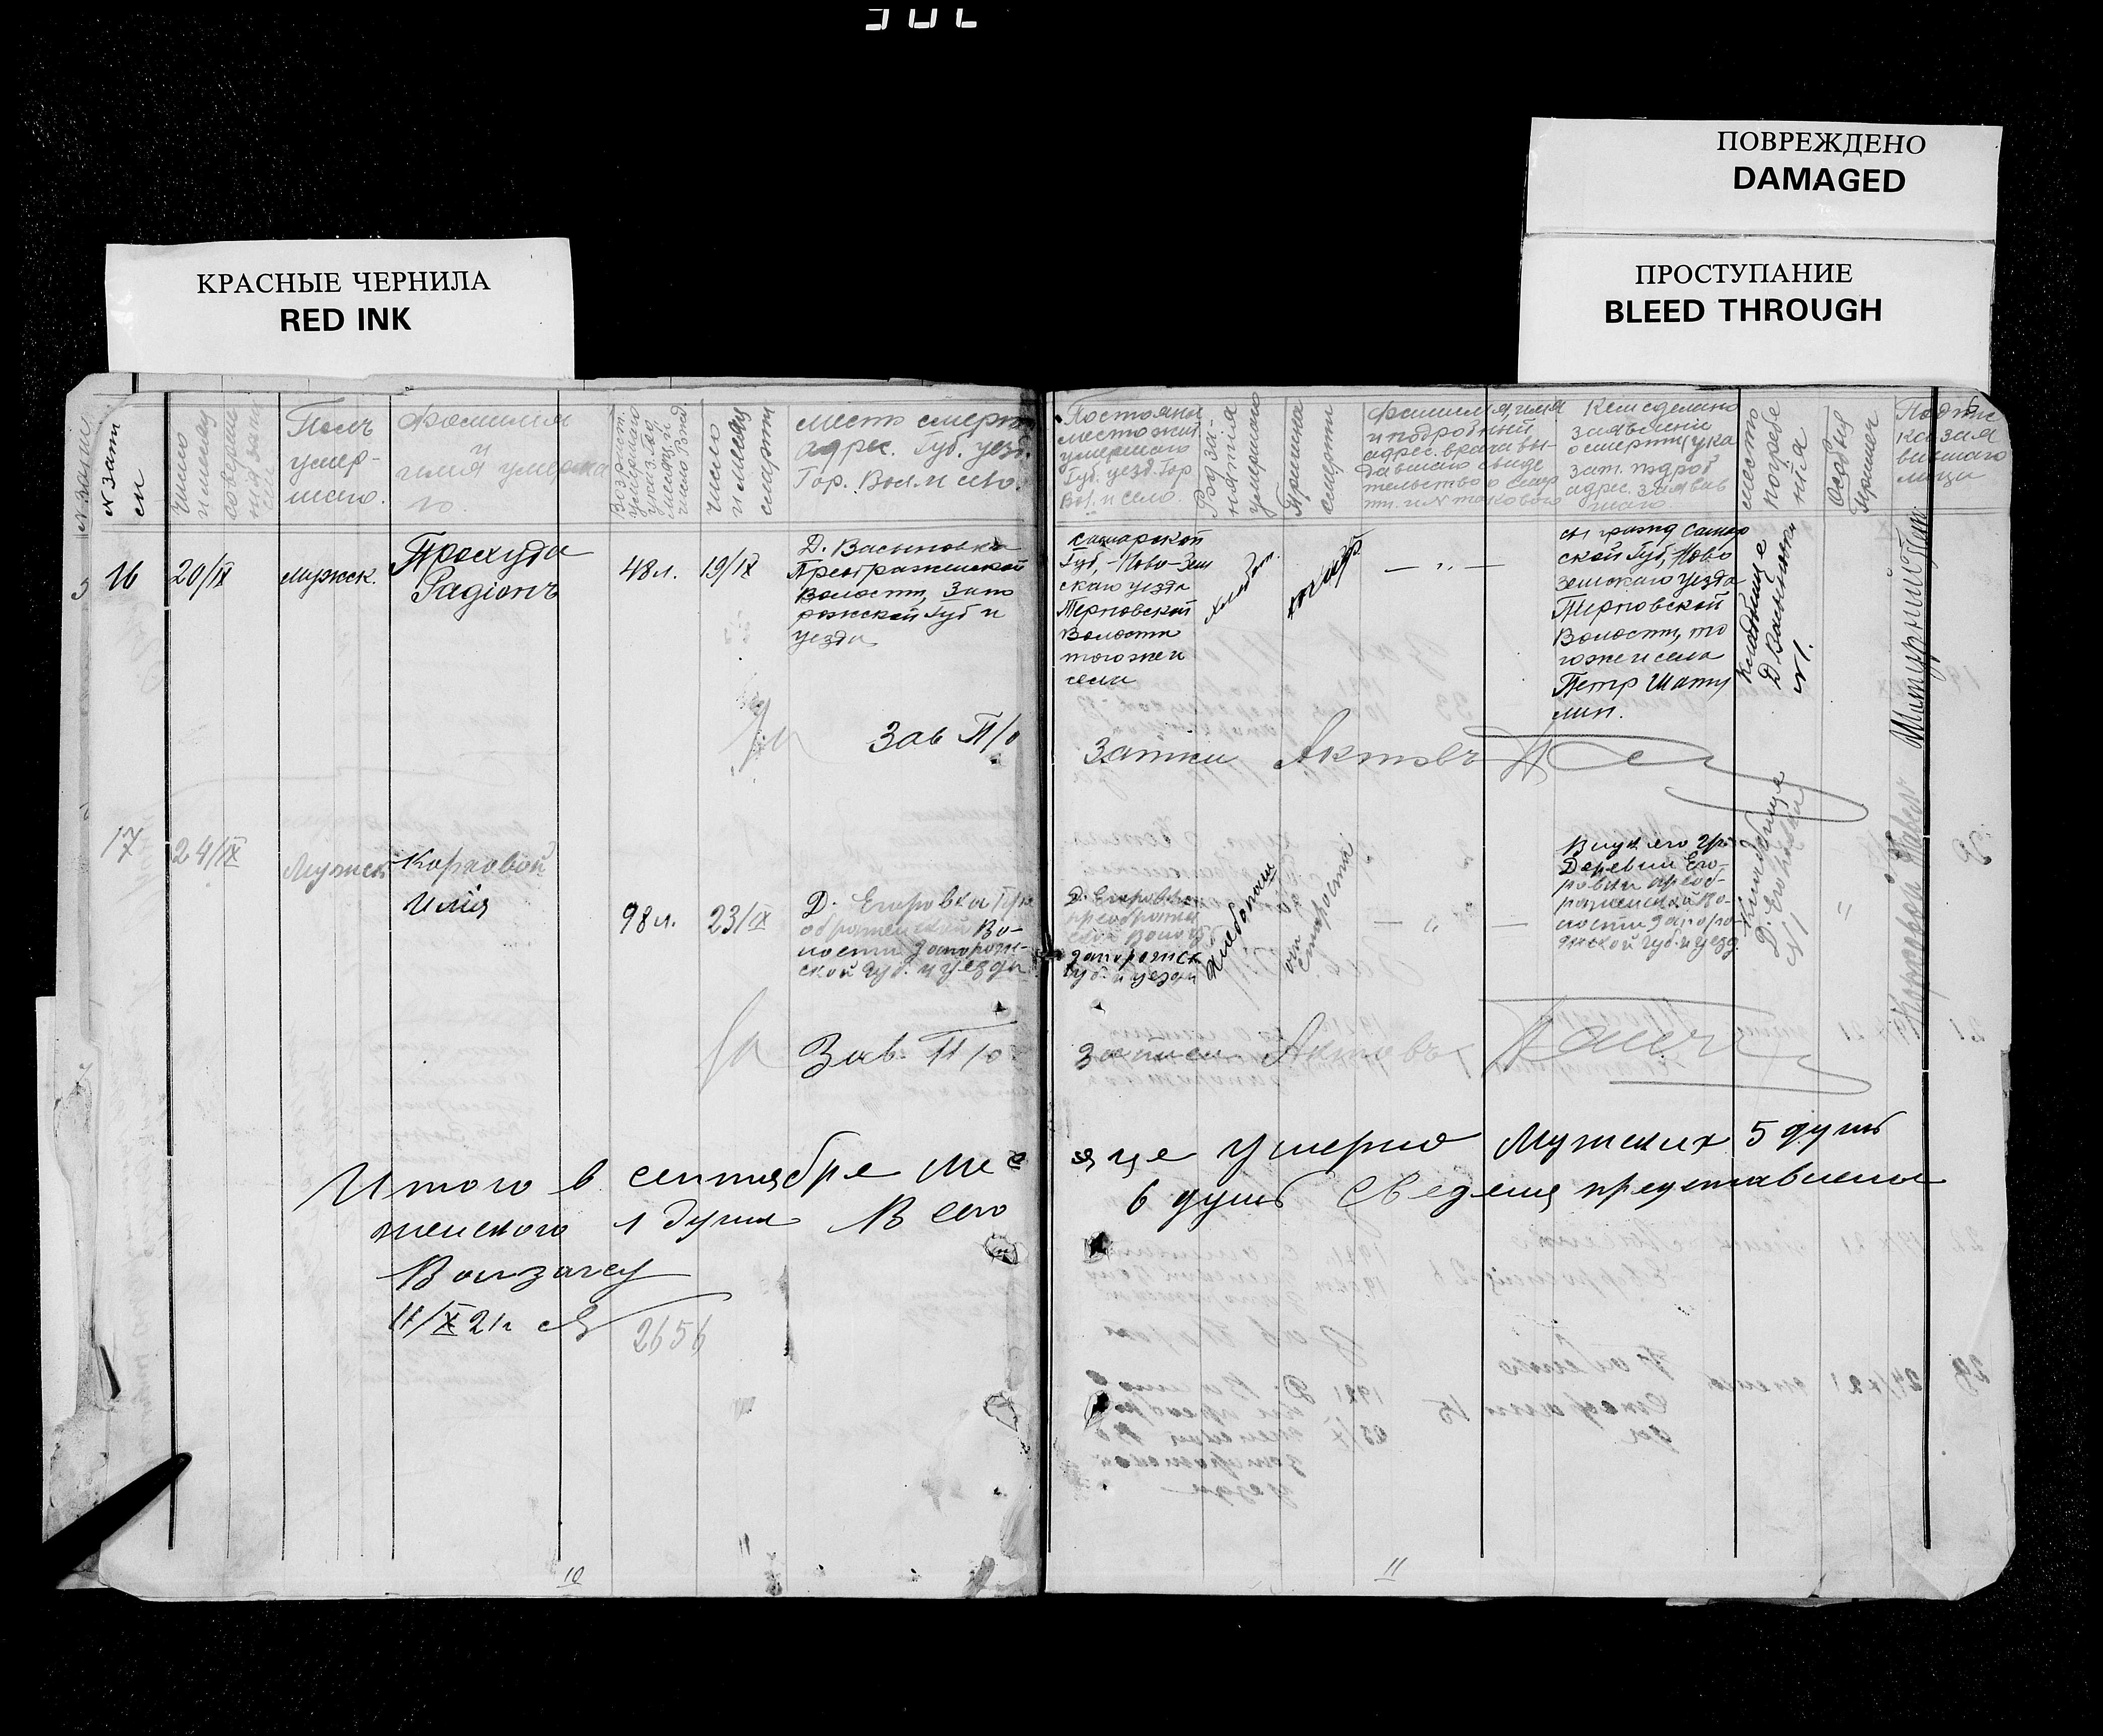 ПОВРЕЖДЕНО
DAMAGED
ПРОСТУПАНИЕ
BLEED THROUGH
КРАСНЫЕ ЧЕРНИЛА
RED INK
№ Запи
си
Число
и месяц
соверше
ния запи
си
Полъ
умер-
шаго.
Фамилия
и
имя умерша
го.
Возраст.
умершаго
указ. Год
месяц и
число рожд
Число
и месяц
смерти
место смерти
адрес. Губ. уезд.
Гор. Вол. и село.
Постоянн
место жит
умершаго
Губ. уезд. Гор
Вол. и село.
Род за-
нятія
умершаго
Причина
смерти
Фамилия, имя
и подробный
адрес. врача вы-
давшаго свиде
тельство о смер
ти. и № такового
Кем сделано
заявлени
о смерти, ука
зат. подроб
адрес. заявив
шаго
место
погребе
нія
Особыя
примеч
Подпис
ка заяв
вившаго
лица
16
20/IX
мужск.
Прохуда
Радіонъ
48 л.
19/IX
Д. Васиновка
Преображенской
Волости, Запо
рожской Губ и
уезда
Самарской
Губ, Ново-Зен
скаго уезда
Терновской
Волости
того же и
села
— " —
гражд Самар
ской Губ, Ново
зенскаго уезда
Терновской
Волости, то
го же и села
Петр Шату
лин.
Кладбище
Д Васиновки
№ 1.
Зав П/о
Записи Актовъ
17
24/IX
Мужск
Коржовой
Илія
98 л.
23/IX
Д. Егоровка Пре
ображенской Во-
лости Запорож-
ской губ. и уезда
Д. Егоровка
преображен
ской Волости
Запорожск
губ. и уезда
Хлебопаш
от
старости
— " —
Внук его гр.
Деревни Его-
ровки преоб-
раженской Во-
лости Запоро
жской губ. и уезд.
Кладбище
Д. Егоровки
№ 1
"
Коржовой Павел
за
Зав. П/о
Записи Актовъ
Итого в сентябре месяце умерло Мужских 5 душъ
женского 1 душа Всего 6 душъ Сведения представлены
Волзагсу
11/X 21 г за
2656
10
11